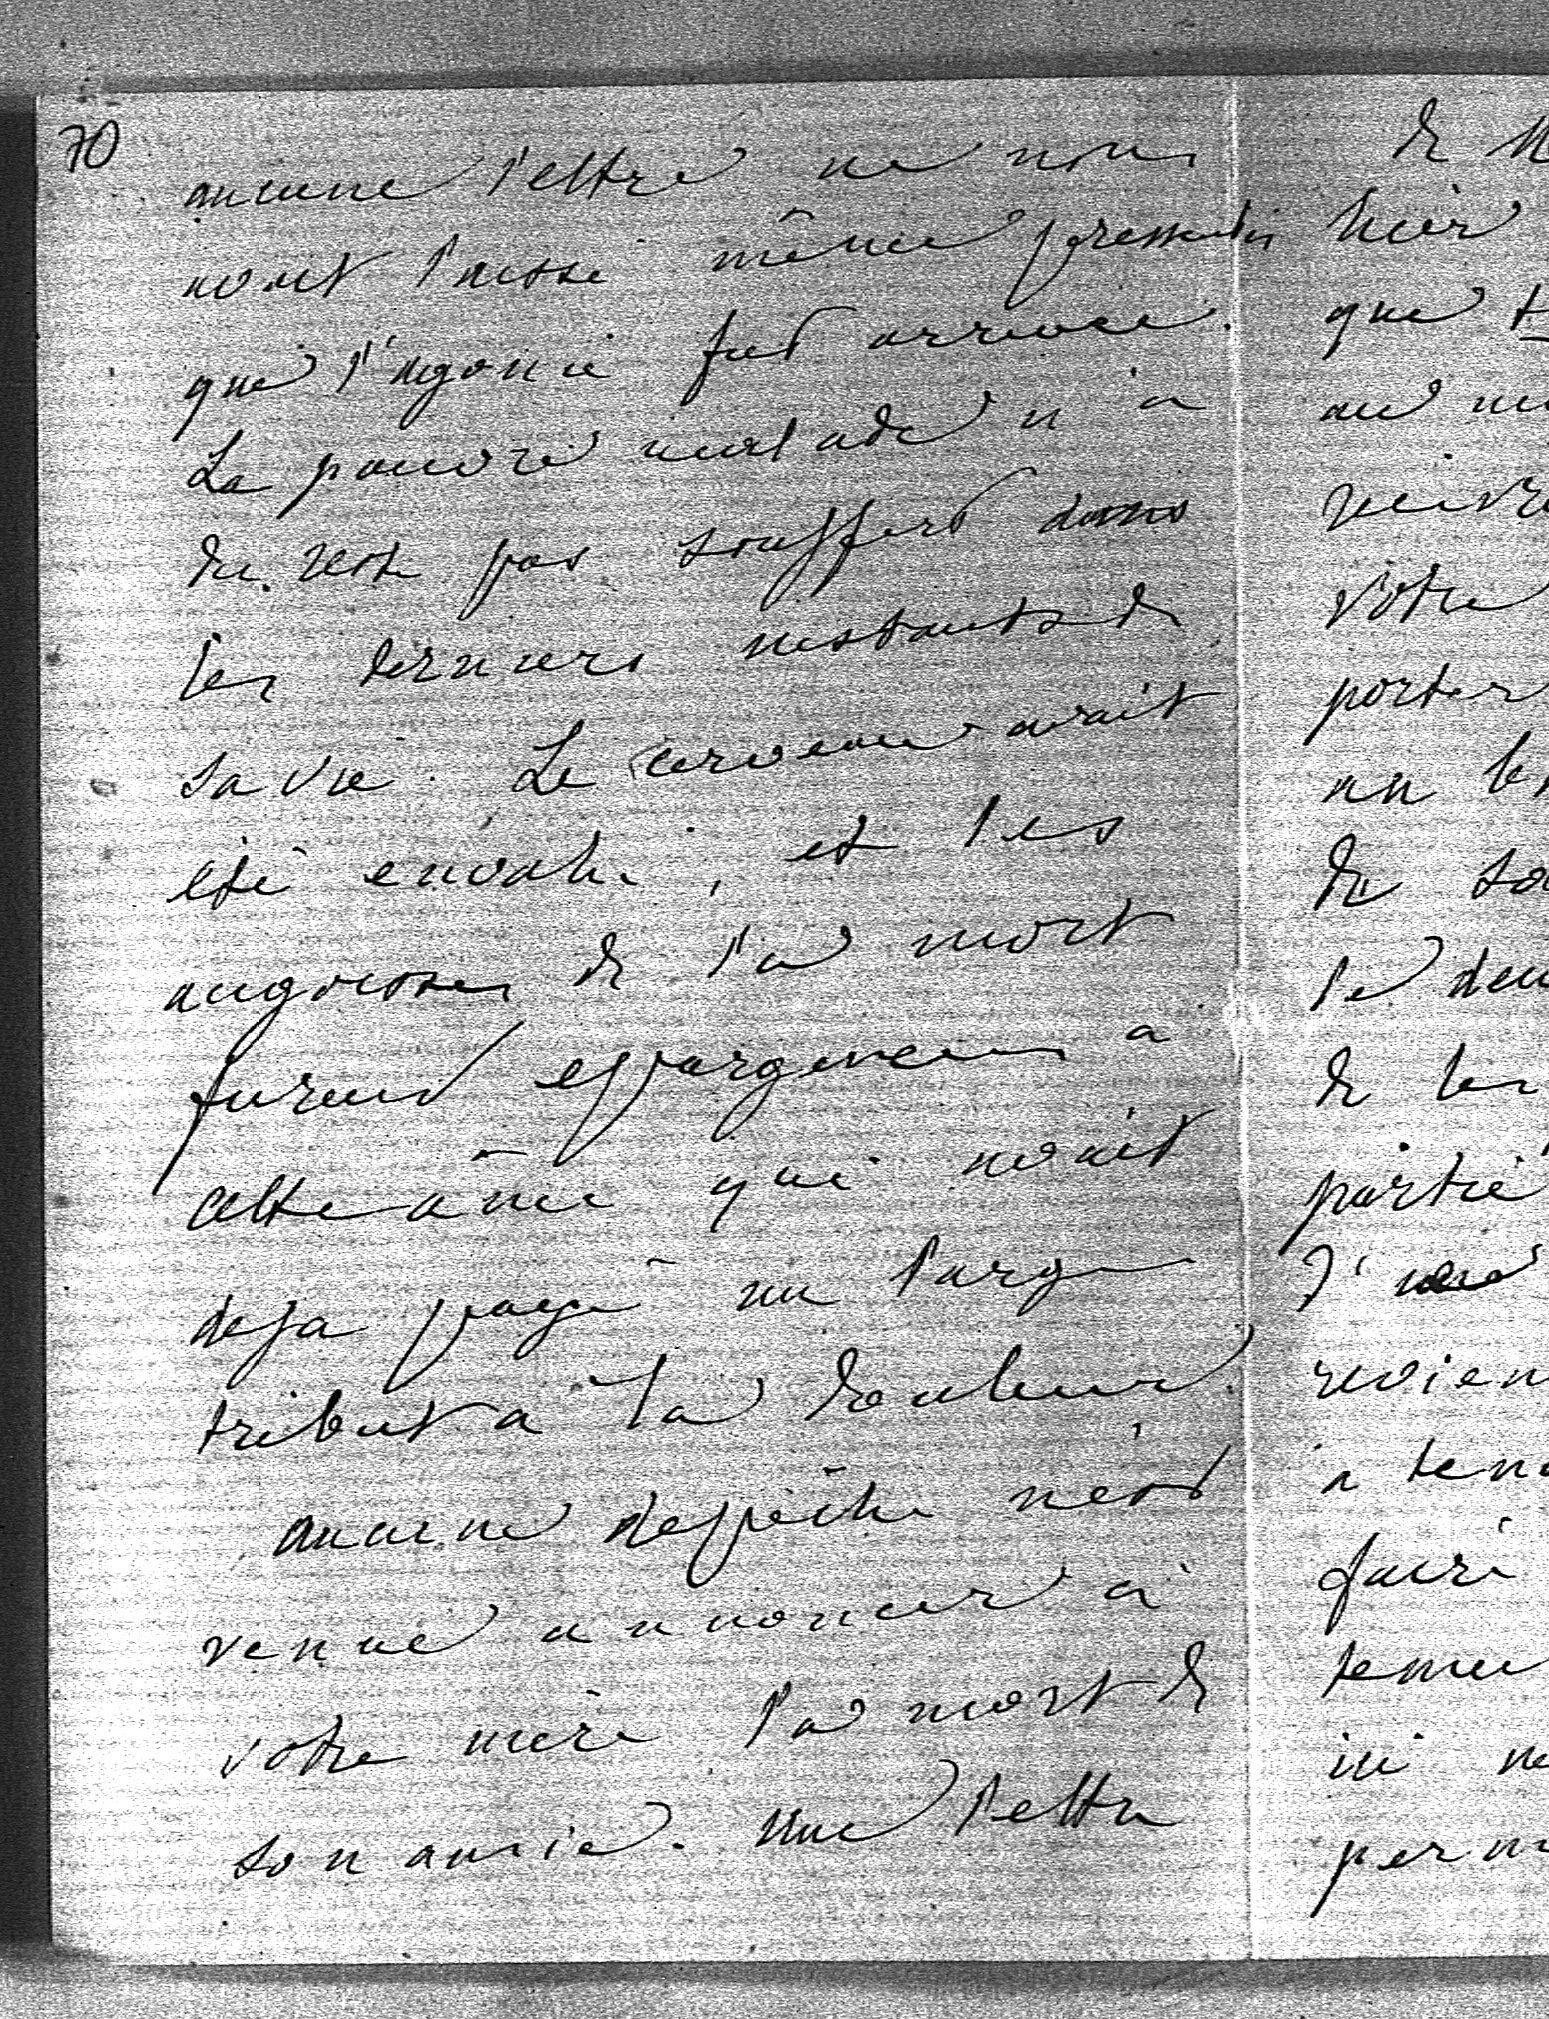 70
aucune lettre ne nous
avait laissé même pressentir
que l'agonie fut arrivée.
La pauvre malade n'a
du reste pas souffert dans
les derniers instants de
sa vie. Le cerveau avait
été envahi, et les
angoisses de la mort
furent epargnées a
cette âme qui avait
deja payé un large
tribut à la douleur.
aucune depêche n'est
venue annoncer à
votre mère la mort de
son amie. Une lettre
de
hier
que
votre
porter
un
de
le
de les
partie
revien
à
faire
ici